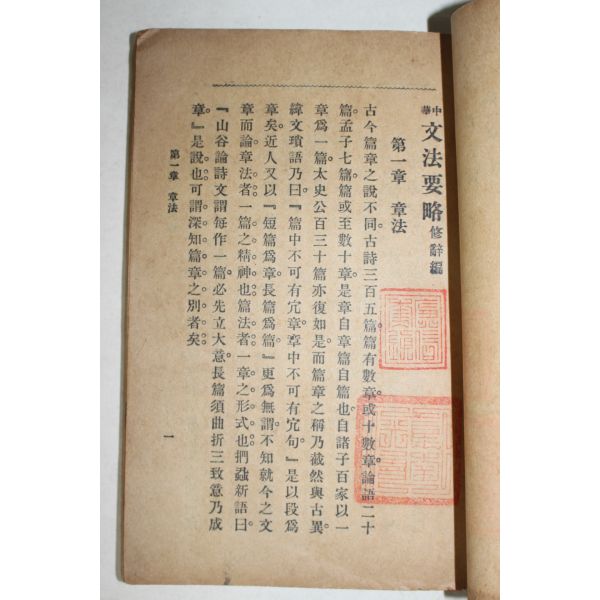 中華文法要略修辭編
第一章　章法
古今篇章之說不同。古詩三百五篇篇有數章。或十數章。論語二十
篇。孟子七篇。篇或至數十章。是章自章篇自篇也。自諸子百家以一
章爲一篇。太史公百三十篇亦復如是。而篇章之稱乃截然與古異。
緯文瑣語乃曰『篇中不可有宂章。章中不可有宂句。』是以段爲
章矣。近人又以『短篇爲章長篇爲篇』更爲無謂。不知就今之文
章而論。章法者。一篇之精神也。篇法者。一章之形式也。捫蝨新語曰
『山谷論詩文謂每作一篇。必先立大意。長篇須曲折三致意。乃成
章。』是說也。可謂深知篇章之別者矣
第一章　章法
一